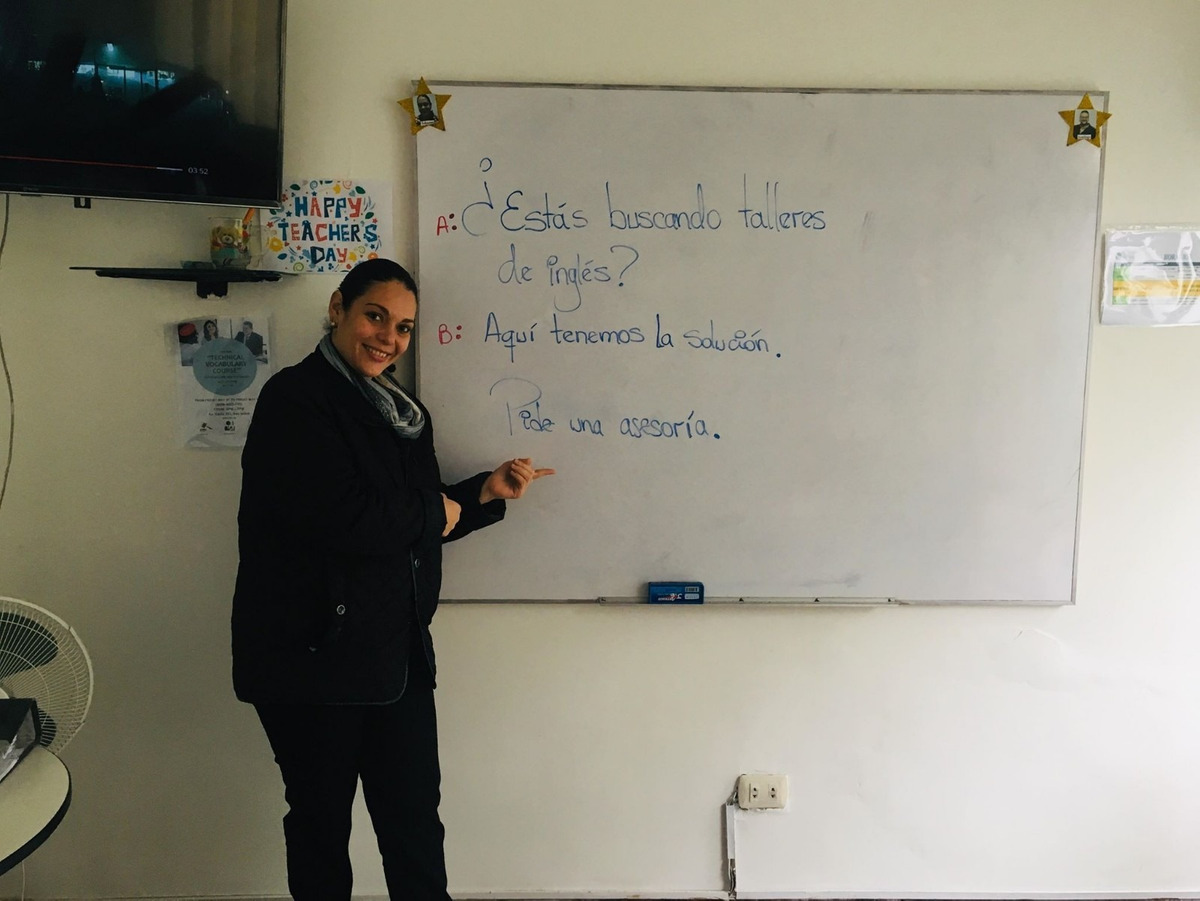 03:52
HAPPY
TEACHER'S
DAY
"TECHNICAL
VOCABULARY
COURSE"
A: ¿Estás buscando talleres
de inglés?
B: Aquí tenemos la solución.
Pide una asesoría.